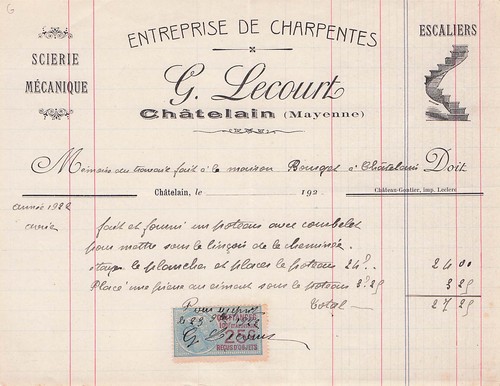 ENTREPRISE DE CHARPENTES
SCIERIE
MÉCANIQUE
ESCALIERS
G. Lecourt
Châtelain (Mayenne)
Mémoire du travaux fait à la maison à Châtelain Doit
Châtelain, le 192
Château-Gontier, imp. Leclerc
année 1922
fait et fourni un poteau avec
pour mettre sous le linçois de la cheminée
le plancher et placer le poteau 24 f. 24 00
Placé une pierre au ciment sous le poteau 3 f. 25 3 25
Total 27 25
Pour acquit
25c
G. Lecourt